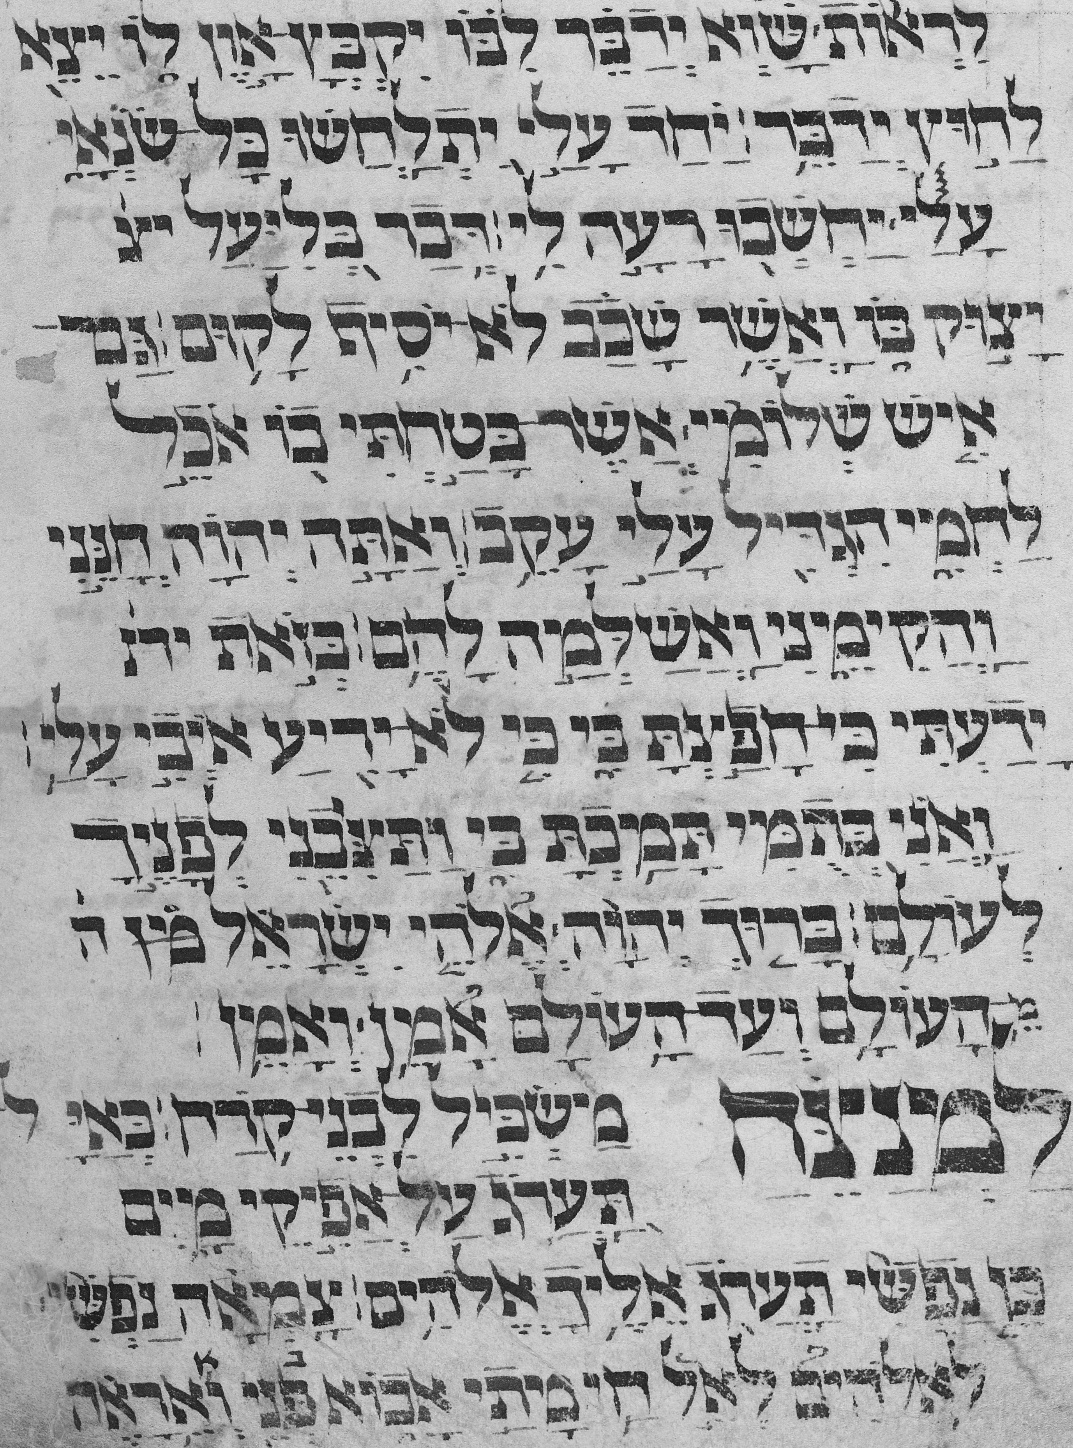 לִרְאוֹת שָׁוְא יְדַבֵּר לִבּוֹ יִקְבָּץ־אָוֶן לוֹ יֵצֵא
לַחוּץ יְדַבֵּר׃ יַחַד עָלַי יִתְלַחֲשׁוּ כָּל־שֹׂנְאָי
עָלַי יַחְשְׁבוּ רָעָה לִי׃ דְּבַר בְּלִיַּעַל יצ
יָצוּק בּוֹ וַאֲשֶׁר שָׁכַב לֹא־יוֹסִיף לָקוּם׃ גַּם־
אִישׁ שְׁלוֹמִי אֲשֶׁר־בָּטַחְתִּי בוֹ אֹכֵל
לַחְמִי הִגְדִּיל עָלַי עָקֵב׃ וְאַתָּה יְהוָה חָנֵּנִי
וַהֲקִימֵנִי וַאֲשַׁלְּמָה לָהֶם׃ בְּזֹאת יד
יָדַעְתִּי כִּי־חָפַצְתָּ בִּי כִּי לֹא־יָרִיעַ אֹיְבִי עָלָי׃
וַאֲנִי בְּתֻמִּי תָּמַכְתָּ בִּי וַתַּצִּיבֵנִי לְפָנֶיךָ
לְעוֹלָם׃ בָּרוּךְ יְהוָה אֱלֹהֵי יִשְׂרָאֵל מִן ה
מֵהָעוֹלָם וְעַד־הָעוֹלָם אָמֵן וְאָמֵן׃
לַמְנַצֵּחַ מַשְׂכִּיל לִבְנֵי־קֹרַח׃ כְּאַיָּל
תַּעֲרֹג עַל־אֲפִיקֵי מָיִם
כֵּן נַפְשִׁי תַעֲרֹג אֵלֶיךָ אֱלֹהִים׃ צָמְאָה נַפְשִׁי
לֵאלֹהִים לְאֵל חָי מָתַי אָבוֹא פְּנֵי וְאֵרָאֶה